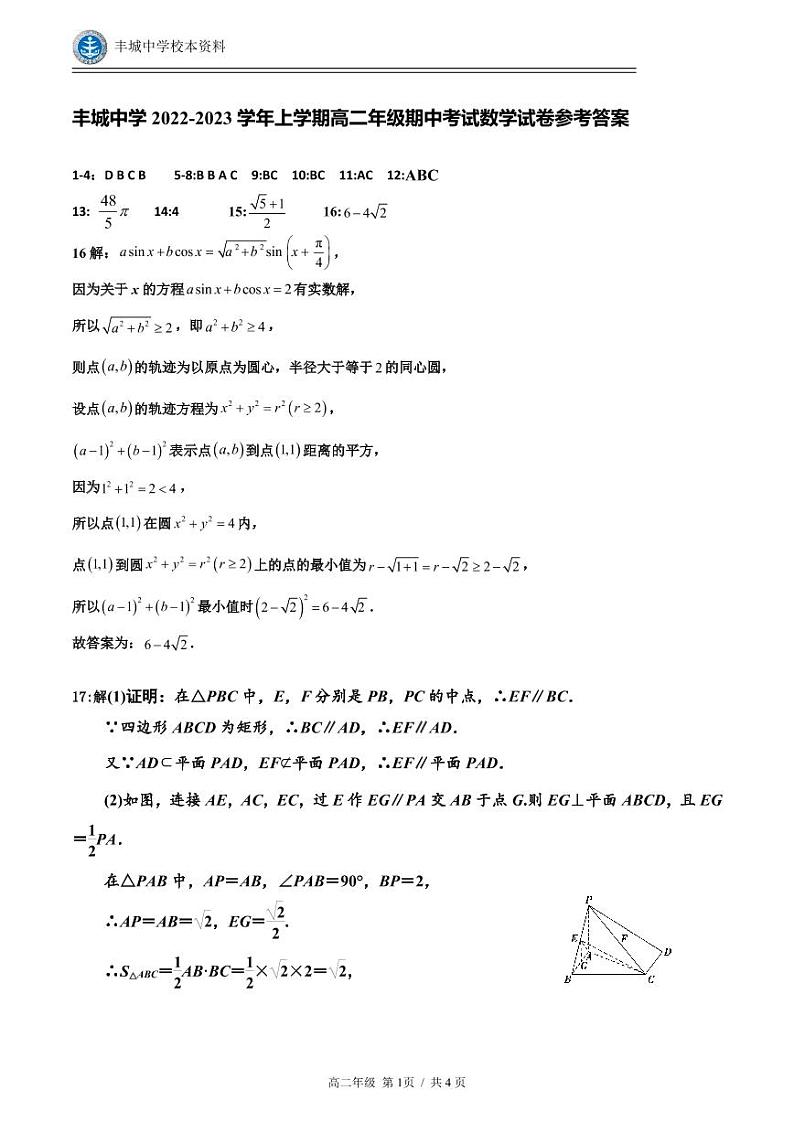 丰城中学校本资料
丰城中学 2022-2023 学年上学期高二年级期中考试数学试卷参考答案
1-4：D B C B 5-8:B B A C 9:BC 10:BC 11:AC 12:ABC
13: 48/5 π 14:4 15: (√5+1)/2 16: 6−4√2
16 解：a sin x + b cos x = √(a²+b²) sin(x + π/4)，
因为关于 x 的方程 a sin x + b cos x = 2 有实数解，
所以 √(a²+b²) ≥ 2，即 a²+b² ≥ 4，
则点(a,b)的轨迹为以原点为圆心，半径大于等于 2 的同心圆，
设点(a,b)的轨迹方程为 x²+y²=r²(r≥2)，
(a−1)²+(b−1)² 表示点(a,b)到点(1,1)距离的平方，
因为1²+1²=2<4，
所以点(1,1)在圆 x²+y²=4内，
点(1,1)到圆 x²+y²=r²(r≥2)上的点的最小值为 r−√(1+1)=r−√2≥2−√2，
所以(a−1)²+(b−1)² 最小值时(2−√2)²=6−4√2．
故答案为：6−4√2．
17:解(1)证明：在△PBC 中，E，F 分别是 PB，PC 的中点，∴EF∥BC.
∵四边形 ABCD 为矩形，∴BC∥AD，∴EF∥AD.
又∵AD⊂平面 PAD，EF⊄平面 PAD，∴EF∥平面 PAD.
(2)如图，连接 AE，AC，EC，过 E 作 EG∥PA 交 AB 于点 G.则 EG⊥平面 ABCD，且 EG
＝1/2PA.
在△PAB 中，AP＝AB，∠PAB＝90°，BP＝2，
∴AP＝AB＝√2，EG＝√2/2.
∴S△ABC＝1/2AB·BC＝1/2×√2×2＝√2，
P
E
F
A
D
G
B
C
高二年级 第 1页 / 共 4 页